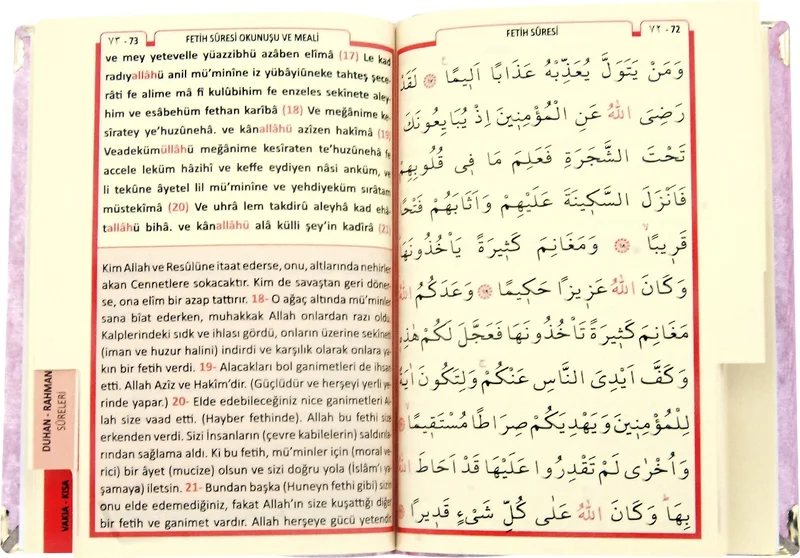 ٧٣ - 73
FETİH SÛRESİ OKUNUŞU VE MEALİ
ve mey yetevelle yüazzibhü azâben elîmâ (17) Le kad
radıyallâhü anil mü'minîne iz yübâyiûneke tahteş şece-
râti fe alime mâ fî kulûbihim fe enzeles sekînete aley-
him ve esâbehüm fethan karîbâ (18) Ve meğânime ke-
sîratey ye'huzûnehâ. ve kânallâhü azîzen hakîmâ (19)
Veadekümüllâhü meğânime kesîraten te'huzûnehâ fe
accele leküm hâzihî ve keffe eydiyen nâsi anküm, ve
li tekûne âyetel lil mü'minîne ve yehdiyeküm sırâtam
müstekîmâ (20) Ve uhrâ lem takdirû aleyhâ kad ehâ-
tallâhü bihâ. ve kânallâhü alâ külli şey'in kadîrâ (21)
Kim Allah ve Resûlüne itaat ederse, onu, altlarında nehirler
akan Cennetlere sokacaktır. Kim de savaştan geri döner-
se, ona elîm bir azap tattırır. 18- O ağaç altında mü'minler
sana bîat ederken, muhakkak Allah onlardan razı oldu.
Kalplerindeki sıdk ve ihlası gördü, onların üzerine sekînet
(iman ve huzur halini) indirdi ve karşılık olarak onlara ya-
kın bir fetih verdi. 19- Alacakları bol ganimetleri de ihsan
etti. Allah Azîz ve Hakîm'dir. (Güçlüdür ve herşeyi yerli ye-
rinde yapar.) 20- Elde edebileceğiniz nice ganimetleri Al-
lah size vaad etti. (Hayber fethinde). Allah bu fethi size
erkenden verdi. Sizi İnsanların (çevre kabilelerin) saldırıla-
rından sağlama aldı. Ki bu fetih, mü'minler için (moral ve-
rici) bir âyet (mucize) olsun ve sizi doğru yola (İslâm'ı ya-
şamaya) iletsin. 21- Bundan başka (Huneyn fethi gibi) sizin
onu elde edemediğiniz, fakat Allah'ın size kuşattığı diğer
bir fetih ve ganimet vardır. Allah herşeye gücü yetendir.
DUHAN - RAHMAN
SÛRELERİ
VAKIA - KISA
FETİH SÛRESİ
٧٢ - 72
وَمَنْ يَتَوَلَّ يُعَذِّبْهُ عَذَابًا اَلٖيمًا ﴿١٧﴾ لَقَدْ
رَضِىَ اللّٰهُ عَنِ الْمُؤْمِنٖينَ اِذْ يُبَايِعُونَكَ
تَحْتَ الشَّجَرَةِ فَعَلِمَ مَا فٖى قُلُوبِهِمْ
فَاَنْزَلَ السَّكٖينَةَ عَلَيْهِمْ وَاَثَابَهُمْ فَتْحًا
قَرٖيبًا ﴿١٨﴾ وَمَغَانِمَ كَثٖيرَةً يَاْخُذُونَهَا
وَكَانَ اللّٰهُ عَزٖيزًا حَكٖيمًا ﴿١٩﴾ وَعَدَكُمُ اللّٰهُ
مَغَانِمَ كَثٖيرَةً تَاْخُذُونَهَا فَعَجَّلَ لَكُمْ هٰذِهٖ
وَكَفَّ اَيْدِىَ النَّاسِ عَنْكُمْ وَلِتَكُونَ اٰيَةً
لِلْمُؤْمِنٖينَ وَيَهْدِيَكُمْ صِرَاطًا مُسْتَقٖيمًا ﴿٢٠﴾
وَاُخْرٰى لَمْ تَقْدِرُوا عَلَيْهَا قَدْ اَحَاطَ اللّٰهُ
بِهَا وَكَانَ اللّٰهُ عَلٰى كُلِّ شَىْءٍ قَدٖيرًا ﴿٢١﴾